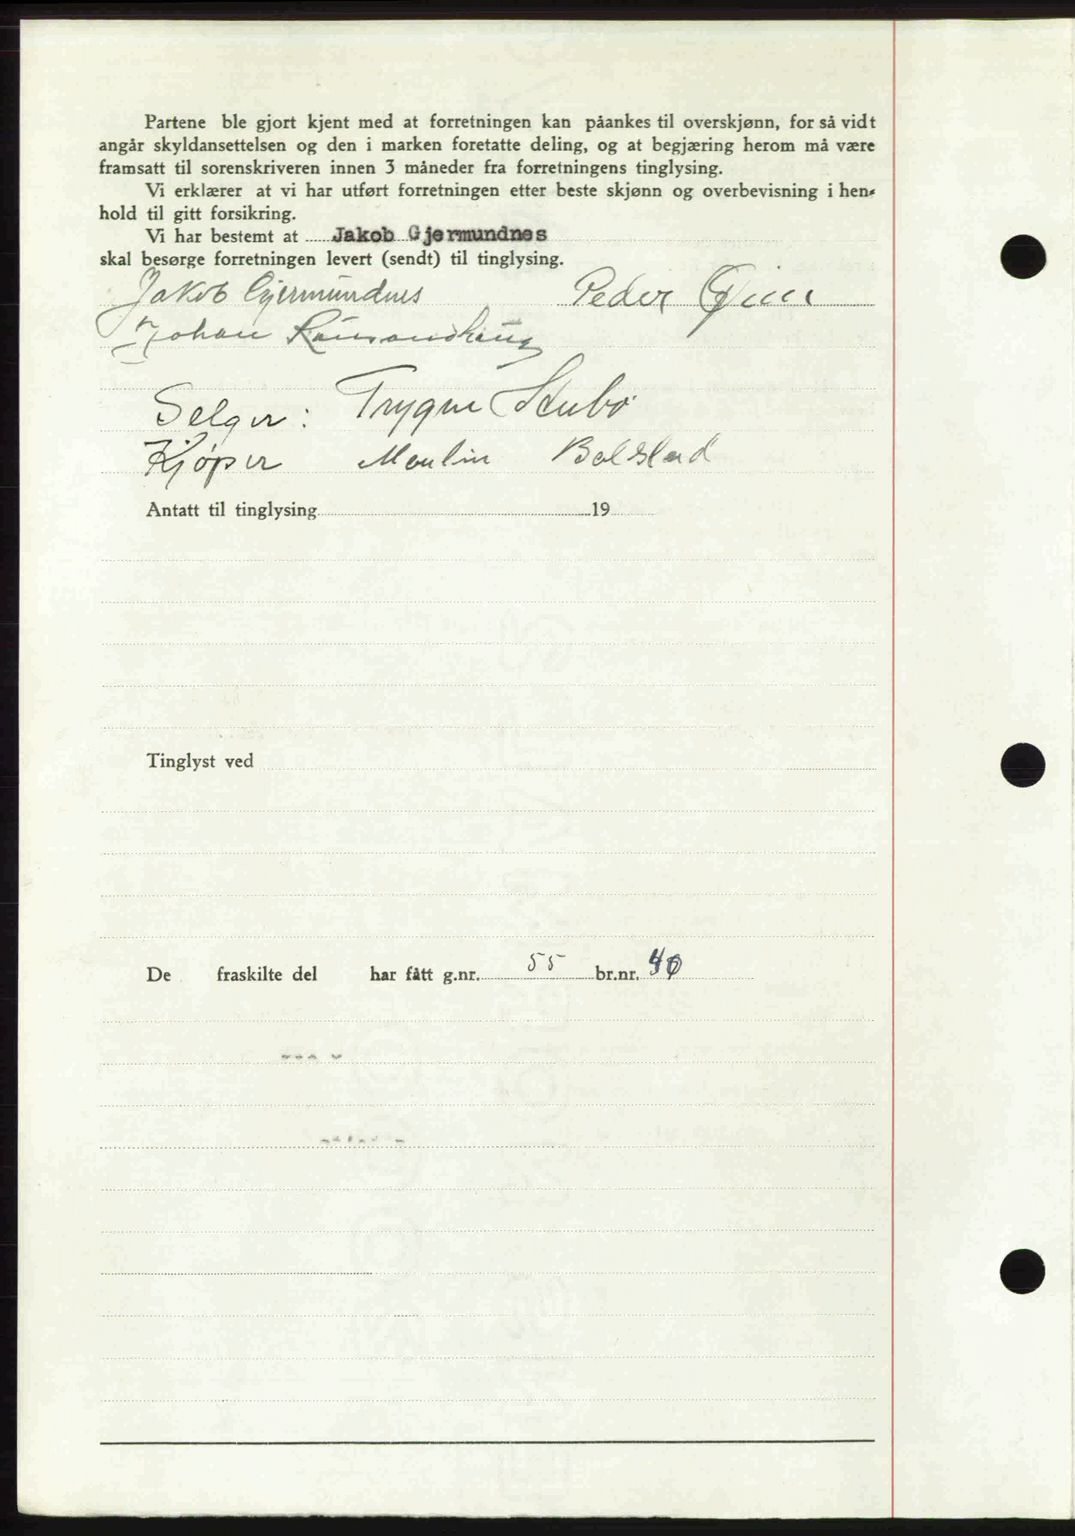 Partene ble gjort kjent med at forretningen kan påankes til overskjønn, for så vidt
angår skyldansettelsen og den i marken foretatte deling, og at begjæring herom må være
framsatt til sorenskriveren innen 3 måneder fra forretningens tinglysing.
Vi erklærer at vi har utført forretningen etter beste skjønn og overbevisning i hen-
hold til gitt forsikring.
Vi har bestemt at Jakob Gjermundnes
skal besørge forretningen levert (sendt) til tinglysing.
Jakob Gjermundnes Peder
Johan
Selger: Trygve Stubø
Kjøper Bolstad
Antatt til tinglysing 19
Tinglyst ved
De fraskilte del har fått g.nr. 55 br.nr. 40